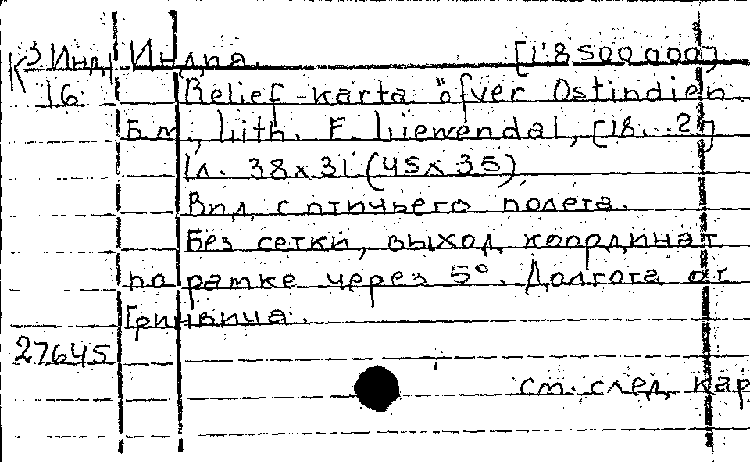 К3 Инд Индия. [1:8500000]
16 Relief-karta öfver Ostindien.
Б.м., Lith. F. Liewendal, [18...?]
1л. 38x31 (45x35)
Вид с птичьего полета.
Без сетки, выход координат
по рамке через 5°. Долгота от
Гринвича.
27645
см. след. кар